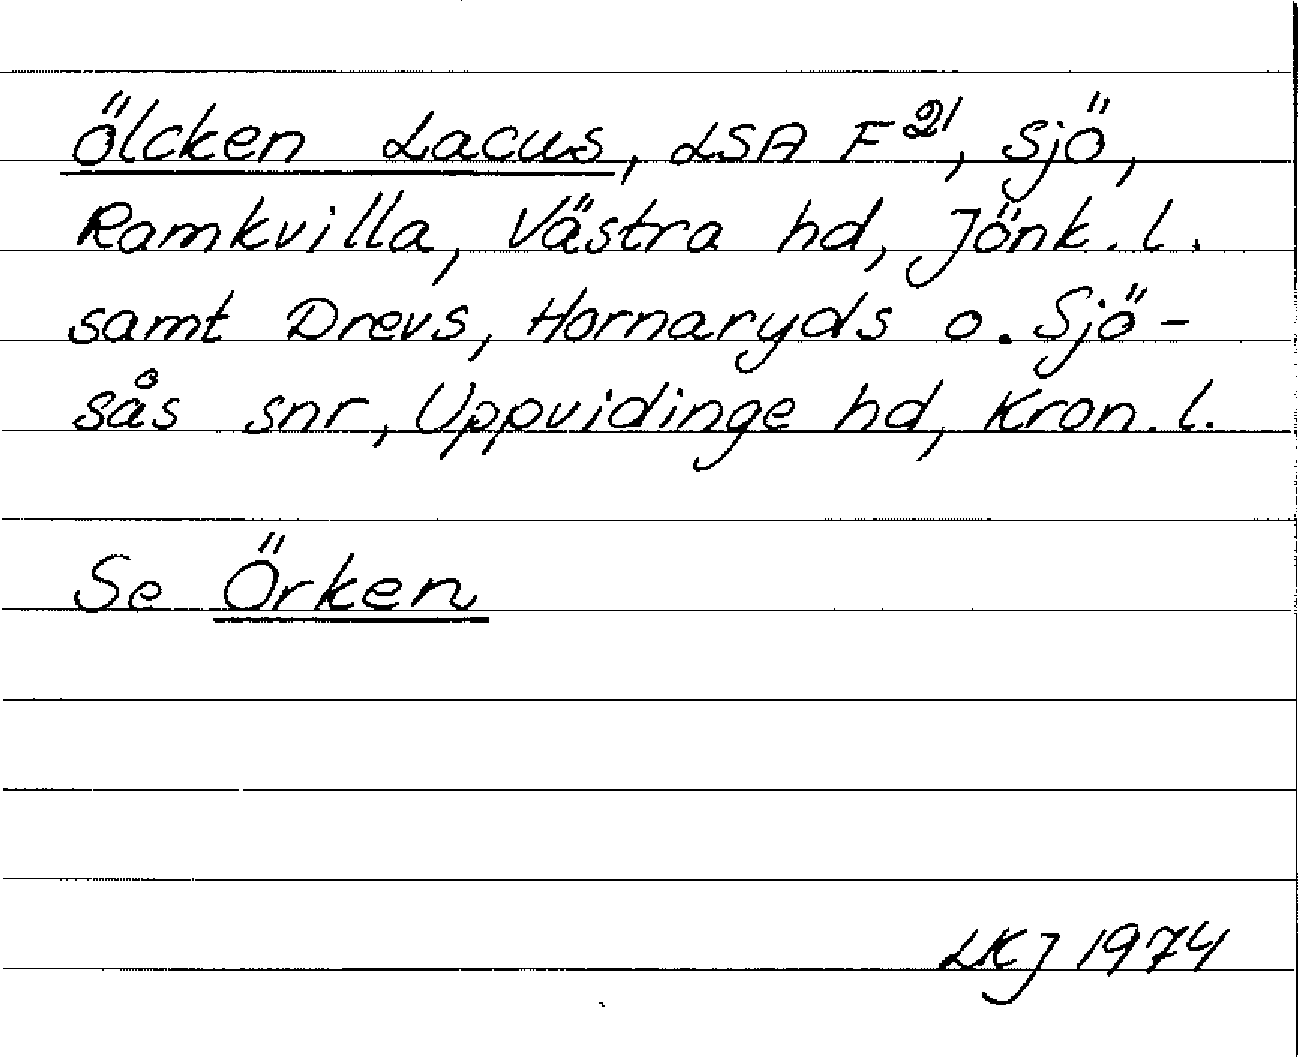 Ölcken Lacus, LSA F²¹, sjö,
Ramkvilla, Västra hd, Jönk. l.
samt Drevs, Hornaryds o. Sjö-
sås snr, Uppvidinge hd, Kron. l.
Se Örken
LKJ 1974